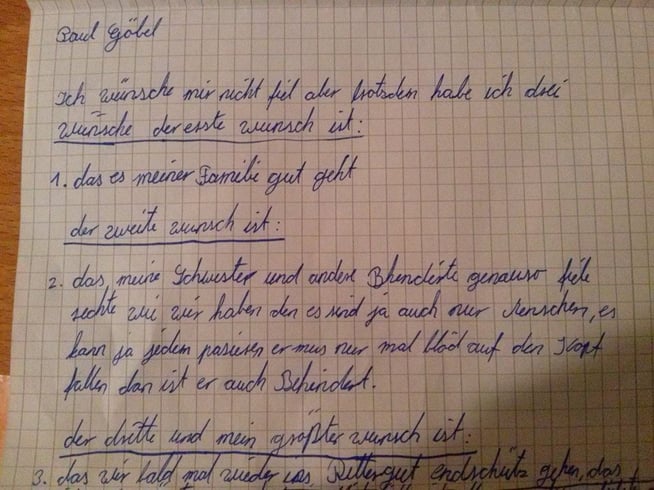 Paul Göbel
Ich wünsche mir nicht fiel aber trotsdem habe ich drei
wünsche der erste wunsch ist:
1. das es meiner Familie gut geht
der zweite wunsch ist:
2. das meine Schwester und andere Bhenderte genauso fiele
rechte wie wir haben den es sind ja auch nur Menschen, es
kann ja jedem pasieren er mus nur mal blöd auf den Kopf
fallen dan ist er auch Behindert.
der dritte und mein größter wunsch ist:
3. das wir bald mal wieder ins Rittergut endschütz gehen, das